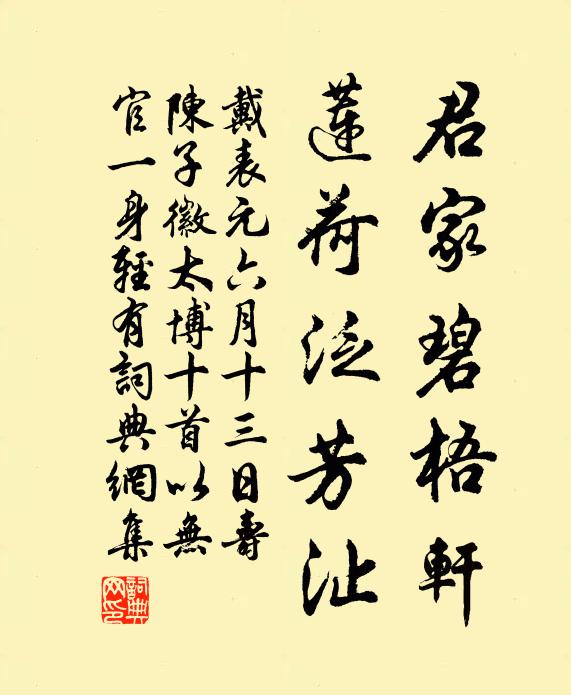 君家碧梧軒
蓮荷泛芳沚
戴表元六月十三日壽
陳子徽太博十首以無
官一身輕有詞典網集
詞典網印